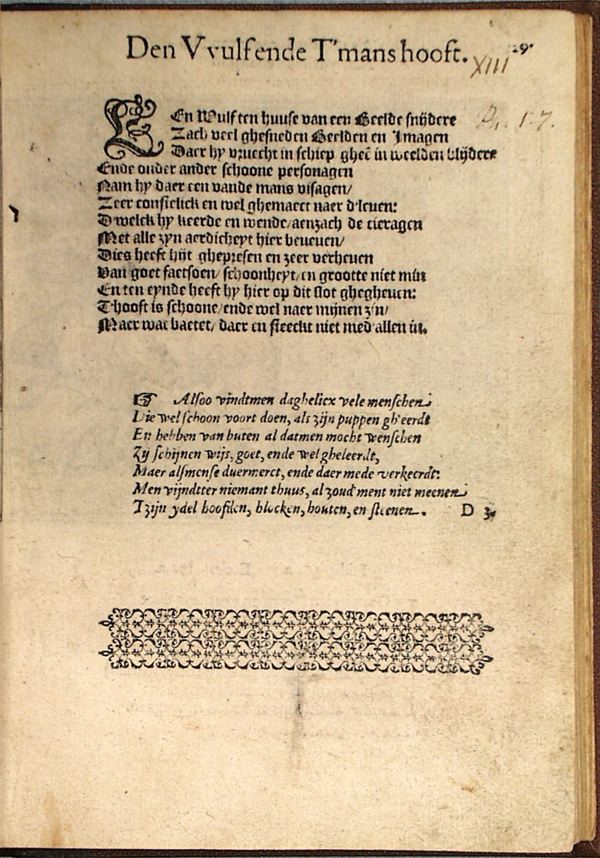 Den Vvulf ende T'mans hooft.
29.
XIII
Ph. 1.7.
EEn Wulf ten huuse van een Beelde snijdere
Zach veel ghesneden Beelden en Imagen
Daer hy vruecht in schiep gheē in weelden blijdere
Ende onder ander schoone personagen
Nam hy daer een vande mans visagen/
Zeer constelick en wel ghemaect naer d'leuen:
Dwelck hy keerde en wende/aenzach de cieragen
Met alle zyn aerdicheyt hier beneuen/
Dies heeft hijt ghepresen en zeer verheuen
Van goet faetsoen/ schoonheyt/en grootte niet min
En ten eynde heeft hy hier op dit slot ghegheuen:
T'hooft is schoone/ende wel naer mijnen zin/
Maer wat baetet/ daer en steeckt niet med'allen in.
☞ Alsoo vindtmen daghelicx vele menschen
Die wel schoon voort doen, als zijn puppen gheerdt
En hebben van buten al datmen mocht wenschen
Zy schijnen wijs, goet, ende wel gheleerdt,
Maer alsmense duermerct, ende daer mede verkeerdt:
Men vijndter niemant thuus, al zoud'ment niet meenen
Tzijn ydel hoofden, blocken, houten, en steenen.
D 3.